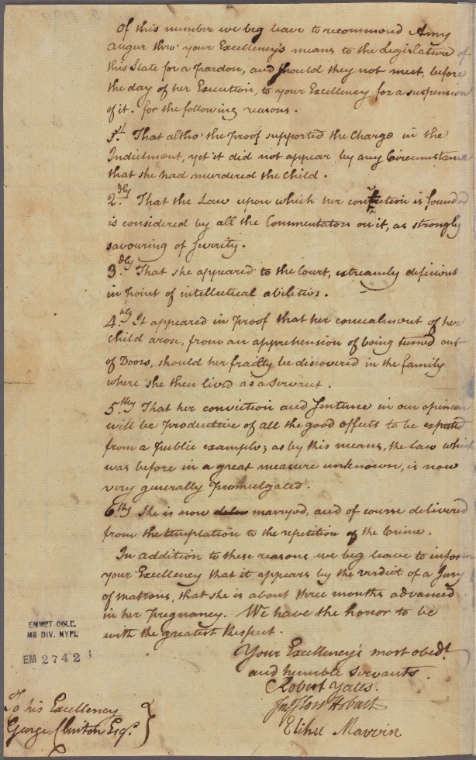 Of this number we beg leave to recommend Amy
Auger thro' your Excellency's means to the Legislature of
this State for a Pardon, and should they not meet before
the day of her Execution, to your Excellency for a suspension
of it. for the following reasons.
1st. That altho' the Proof supported the Charge in the
Indictment, yet it did not appear by any Circumstance
that she had murdered the Child.
2dly. That the Law upon which her conviction is founded
is considered by all the Commentators on it, as strongly
savouring of Severity.
3dly That she appeared to the Court, extreamly deficient
in point of intellectual abilities.
4thly It appeared in Proof that her concealment of her
Child arose, from an apprehension of being turned out
of Doors, should her frailty be discovered in the family
where she then lived as a servant.
5thly That her conviction and Sentence in our opinion
will be productive of all the good effects to be expected
from a Public example; as by this means, the Law which
was before in a great measure unknown, is now
very generally Promulgated.
6thly She is now marryed, and of course delivered
from the temptation to the repetition of the Crime.
In addition to these reasons we beg leave to inform
your Excellency that it appears by the verdict of a Jury
of matrons, that she is about three months advanced
in her Pregnancy. We have the honor to be
with the greatest Respect.
Your Excellency's most obedt.
and humble Servants.
Robert Yates.
Jno Sloss Hobart
Elihu Marvin
EMMET COLL.
MS DIV. NYPL
EM 2742
To his Excellency
George Clinton Esqr.